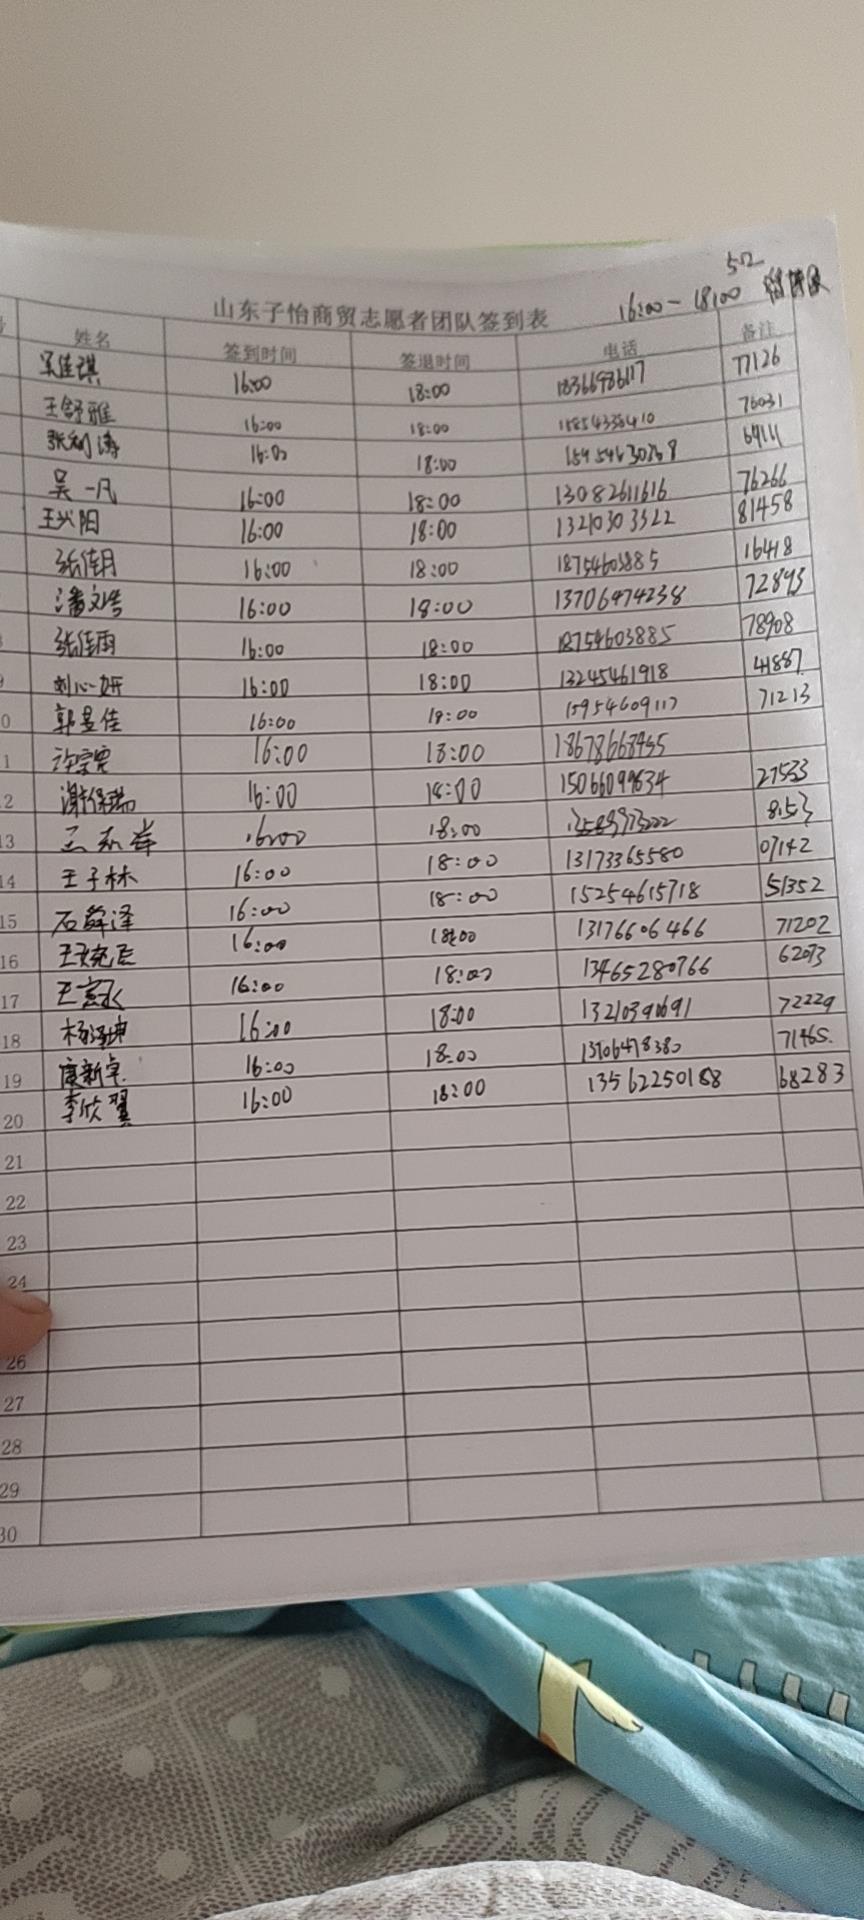 5.12
山东子怡商贸志愿者团队签到表 16:00-18:00
号 姓名 签到时间 签退时间 电话 备注
16:00 18:00 18366986117 77126
王舒雅 16:00 18:00 76031
16:00 18:00
吴一凡 16:00 18:00 13082611616 76266
王兴阳 16:00 18:00 13210303322 81458
张佳玥 16:00 18:00 18754603885 16418
潘文浩 16:00 18:00 13706474238 72893
8 张佳雨 16:00 18:00 18754603885 78908
9 刘心妍 16:00 18:00 13245461918 41887
10 郭昱佳 16:00 18:00 15954609117 71213
11 16:00 18:00 18678668455
12 谢保瑞 16:00 18:00 15066099634 27533
13 16:00 18:00
14 王子林 16:00 18:00 13173365580 07142
15 石舜泽 16:00 18:00 15254615718 51352
16 16:00 18:00 13176606466 71202
17 16:00 18:00 13465280766 62073
18 16:00 18:00 13210390691 72229
19 康新卓 16:00 18:00 13706478380 71465.
20 李欣翼 16:00 18:00 13562250188 68283
21
22
23
24
26
27
28
29
30